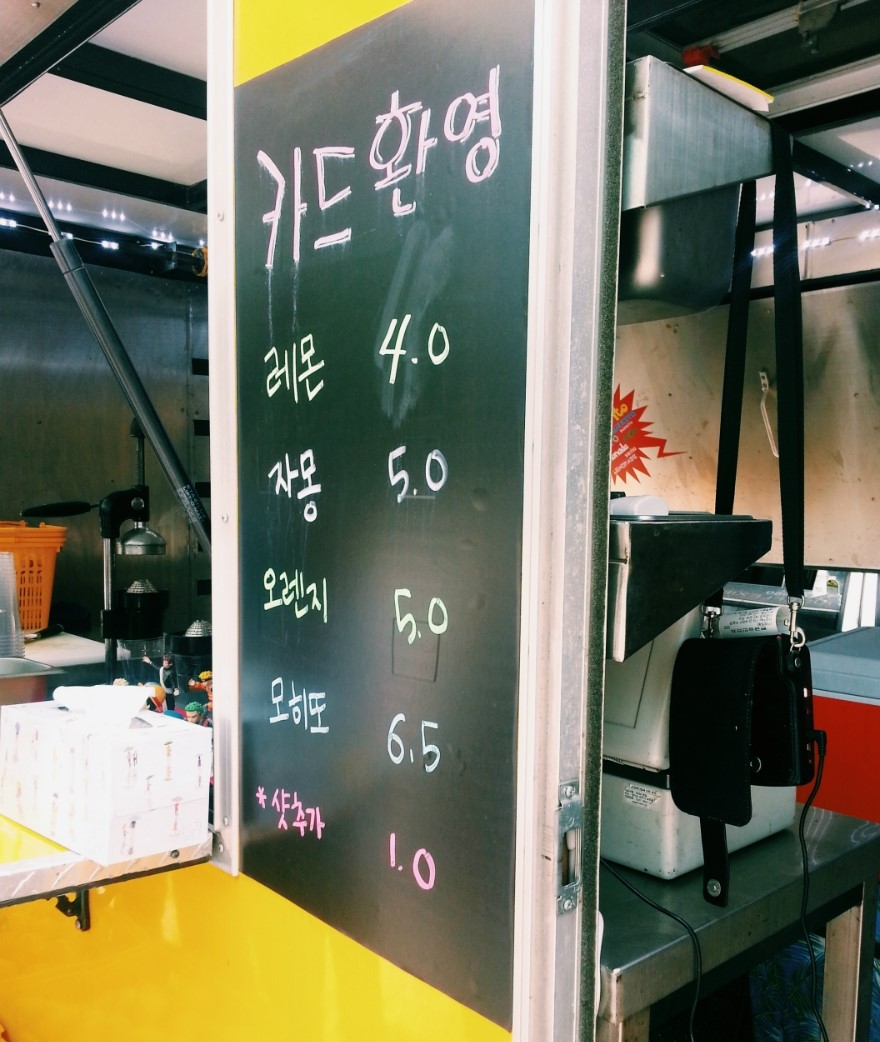 카드환영
레몬 4.0
자몽 5.0
오렌지 5.0
모히또 6.5
*샷추가 1.0